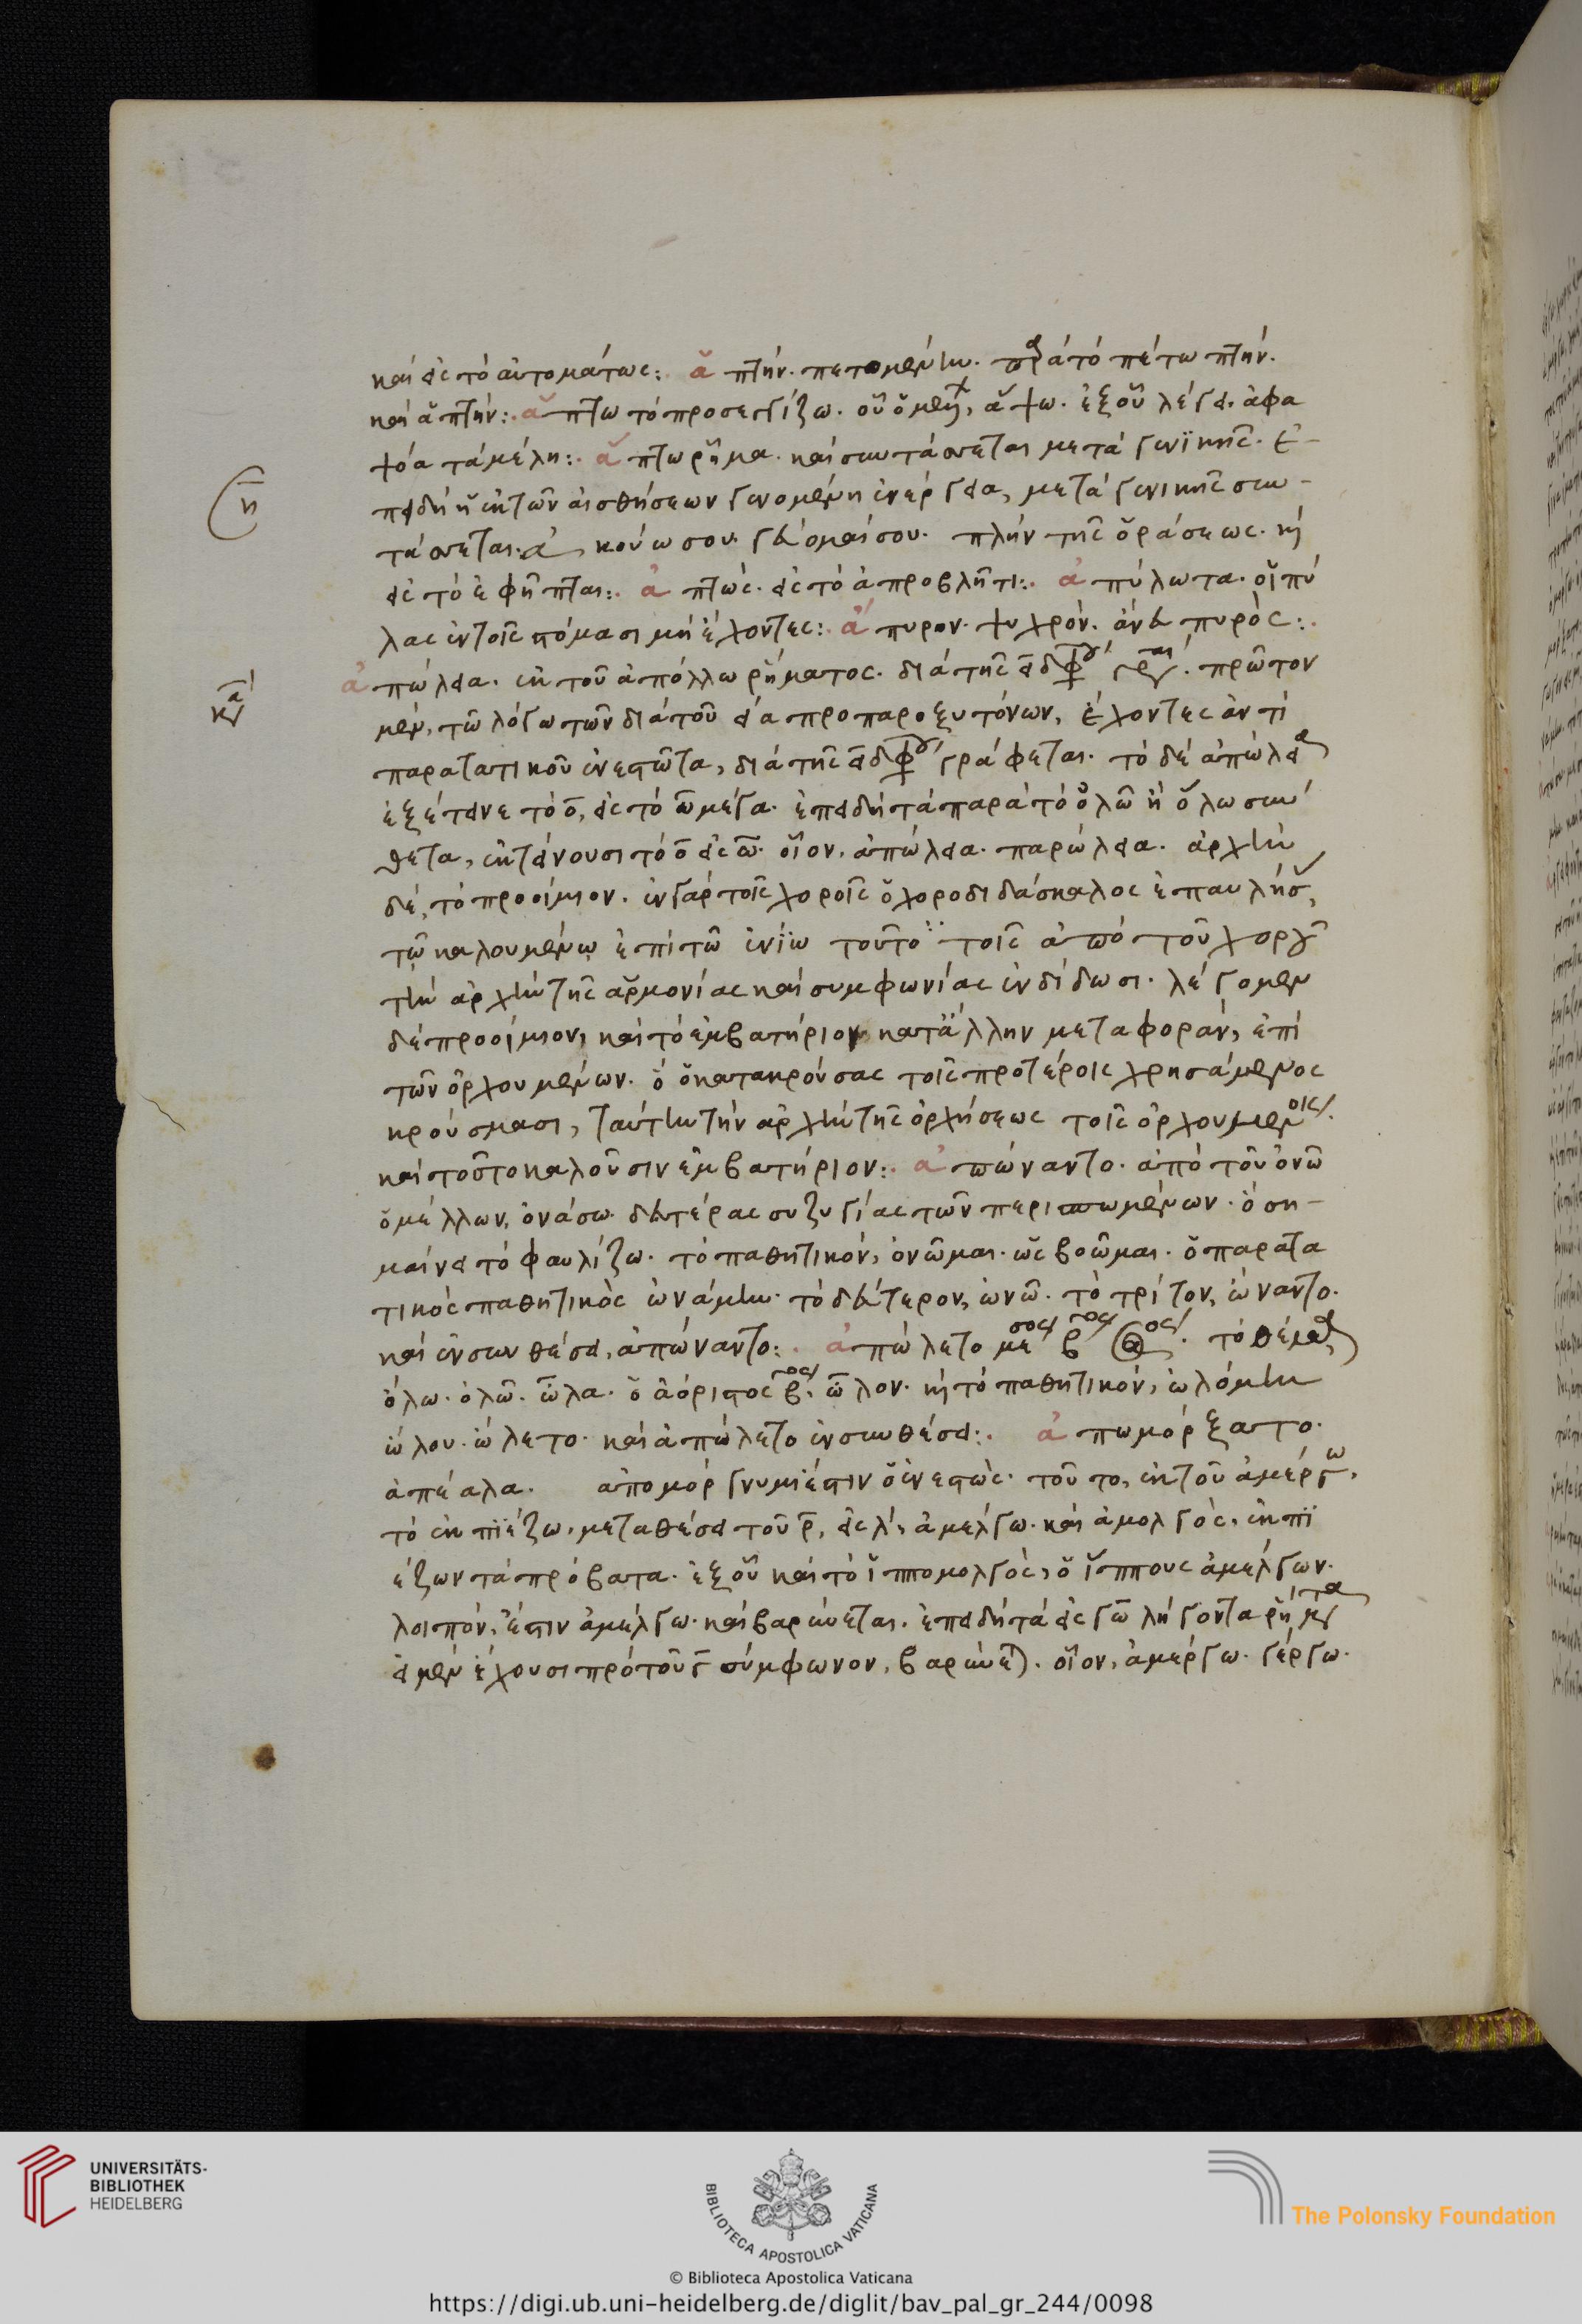 καὶ εἰς τὸ αὐτομάτως: ἀ πτήν. πετομένην. παρὰ τὸ πέτω πτήν.
καὶ ἀπτήν: ἅ πτω τὸ προσεγγίζω. οὗ ὁ μέλλ, ἅψω. ἐξ οὗ λέγει. ἁφα
τὰ μέλη: ἅ πτω ῥῆμα. καὶ συντάσσεται μετὰ γενικῆς. ἐ-
πειδὴ ἡ ἐκ τῶν αἰσθήσεων γενομένη ἐνέργεια, μετὰ γενικῆς συν-
τάσσεται. ἀκούω σου. γεύομαί σου. πλὴν τῆς ὁράσεως. καὶ
εἰς τὸ ἐφῆπται: ἀ πτώς. εἰς τὸ ἀπροβλῆτι: ἀ πύλωτα. οἱ πύ
λας ἐν τοῖς πόμασι μὴ ἔχοντες: ἄ πυρον. ψυχρόν. ἄνευ πυρὸς:
η
κα
ἀ πώλεια. ἐκ τοῦ ἀπόλλω ῥήματος. διὰ τῆς ει διφ γρ. πρῶτον
μὲν, τῷ λόγῳ τῶν διὰ τοῦ εια προπαροξυτόνων, ἔχοντες ἀντὶ
παρατατικοῦ ἐνεστῶτα, διὰ τῆς ει διφ γράφεται. τὸ δὲ ἀπώλεια
ἐξέτεινε τὸ ο, εἰς τὸ ω μέγα. ἐπειδὴ τὰ παρὰ τὸ ὀλῶ ἢ ὄλω σύν
θετα, ἐκτείνουσι τὸ ο εἰς ω. οἷον, ἀπώλεια. παρώλεια. ἀρχὴν
δὲ, τὸ προοίμιον. ἐν γὰρ τοῖς χοροῖς ὁ χοροδιδάσκαλος ἐπαυλήσ,
τῷ καλουμένῳ ἐπὶ τῷ ἐνίω τοῦτο τοῖς ἀπὸ τοῦ χοροῦ
τὴν ἀρχὴν τῆς ἁρμονίας καὶ συμφωνίας ἐνδίδωσι. λέγομεν
δὲ προοίμιον, καὶ τὸ ἐμβατήριον κατ' ἄλλην μεταφοράν, ἐπὶ
τῶν ὀρχουμένων. ὃ ὁ κατακρούσας τοῖς προτέροις χρησάμενος
κρούσμασι, ταύτην τὴν ἀρχὴν τῆς ὀρχήσεως τοῖς ὀρχουμένοις.
καὶ τοῦτο καλοῦσιν ἐμβατήριον: ἀ πώναντο. ἀπὸ τοῦ ὀνῶ
ὁ μέλλων, ὀνάσω. δευτέρας συζυγίας τῶν περισπωμένων. ὃ ση-
μαίνει τὸ φαυλίζω. τὸ παθητικόν, ὀνῶμαι. ὡς βοῶμαι. ὁ παρατα
τικὸς παθητικὸς ὠνάμην. τὸ δεύτερον, ὠνῶ. τὸ τρίτον, ὤναντο.
καὶ ἐν συνθέσει, ἀπώναντο: ἀ πώλετο μέσος β ἀόριστος. τὸ θέμα
ὄλω. ὀλῶ. ὦλα. ὁ ἀόριστος β, ὦλον. καὶ τὸ παθητικόν, ὠλόμην
ὤλου. ὤλετο. καὶ ἀπώλετο ἐν συνθέσει: ἀ πωμόρξατο.
ἀπέαλα. ἀπομόργνυμι ἐστιν ὁ ἐνεστώς. τοῦτο, ἐκ τοῦ ἀμέργω,
τὸ ἐκπιέζω, μεταθέσει τοῦ ρ, εἰς λ, ἀμέλγω. καὶ ἀμολγὸς, ἐκπι
έζων τὰ πρόβατα. ἐξ οὗ καὶ τὸ ἱππομολγὸς, ὁ ἵππους ἀμέλγων.
λοιπὸν, ἔστιν ἀμέλγω. καὶ βαρύνεται. ἐπειδὴ τὰ εἰς γω λήγοντα ῥήματα
εἰ μὲν ἔχουσι πρὸ τοῦ γ σύμφωνον, βαρύνεται. οἷον, ἀμέργω. γέργω.
UNIVERSITÄTS-
BIBLIOTHEK
HEIDELBERG
BIBLIOTECA APOSTOLICA VATICANA
The Polonsky Foundation
© Biblioteca Apostolica Vaticana
https://digi.ub.uni-heidelberg.de/diglit/bav_pal_gr_244/0098